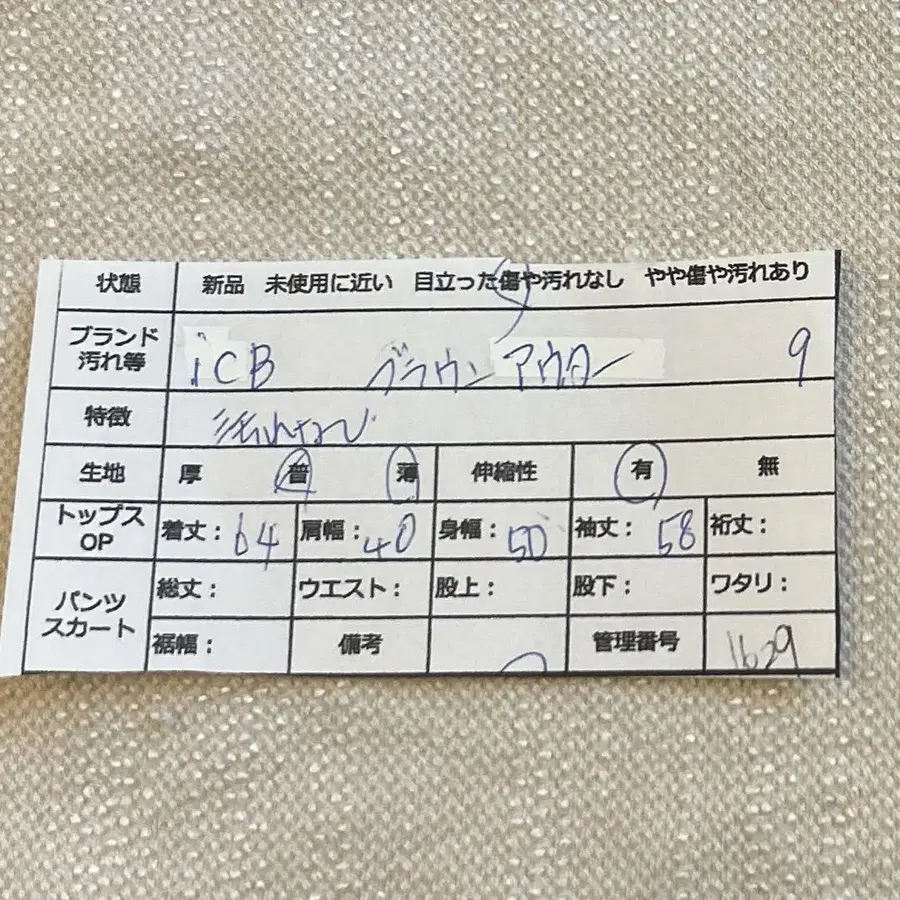 状態 新品 未使用に近い 目立った傷や汚れなし やや傷や汚れあり
ブランド 汚れ等 iCB ブラウン アウター 9
特徴 汚れなし
生地 厚 普 薄 伸縮性 有 無
トップス OP 着丈：64 肩幅：40 身幅：50 袖丈：58 裄丈：
パンツ スカート 総丈： ウエスト： 股上： 股下： ワタリ：
裾幅： 備考 管理番号 1629